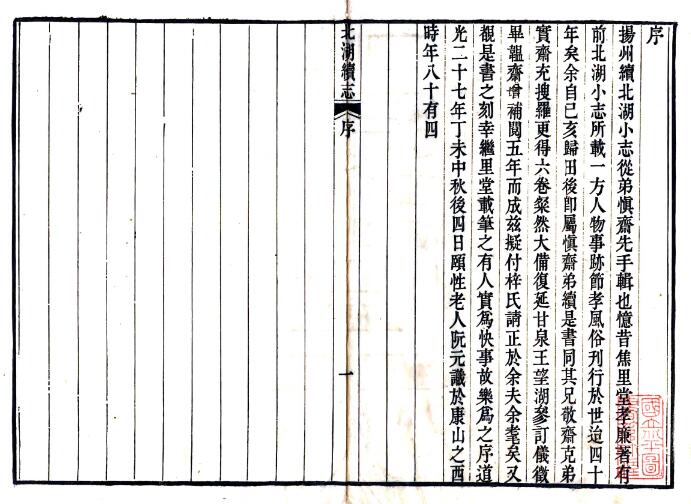 序
揚州續北湖小志從弟慎齋先手輯也憶昔焦里堂孝廉著有
前北湖小志所載一方人物事跡節孝風俗刊行於世迨四十
年矣余自己亥歸田後卽屬慎齋弟續是書同其兄敬齋克弟
實齋充搜羅更得六卷粲然大備復延甘泉王望湖參訂儀徵
畢韞齋曾補閱五年而成兹擬付梓氏請正於余夫余耄矣又
觀是書之刻幸繼里堂載筆之有人實爲快事故樂爲之序道
光二十七年丁未中秋後四日頤性老人阮元識於康山之西
時年八十有四
北湖續志
序
一